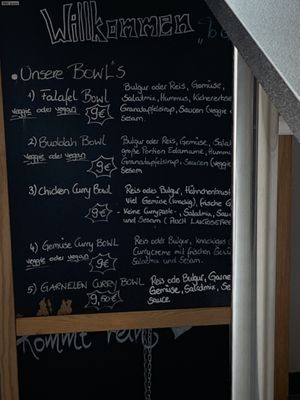 Willkommen
• Unsere BOWL'S
1) Falafel Bowl
veggie oder vegan
9€
Bulgur oder Reis, Gemüse,
Salatmix, Hummus, Kichererbse
Granatapfelsirup, Saucen (veggie
Sesam
2) Buddah Bowl
veggie oder vegan
9€
Bulgur oder Reis, Gemüse, Sala
große Portion Edamame, Hummu
Granatapfelsirup, Saucen (veggie
Sesam
3) Chicken Curry Bowl
9€
Reis oder Bulgur, Hähnchenbrust
Viel Gemüse (knackig), frische G
- Keine Currypaste -, Salatmix, Sau
und Sesam (AUCH LAKTOSEFREI
4) Gemüse Curry BOWL
veggie oder vegan
9€
Reis oder Bulgur, knackiges G
Currycreme mit frischen Gewü
Salatmix und Sesam.
5) GARNELEN CURRY BOWL
9,50€
Reis oder Bulgur, Garne
Gemüse, Salatmix, Se
sauce
Kommt rein